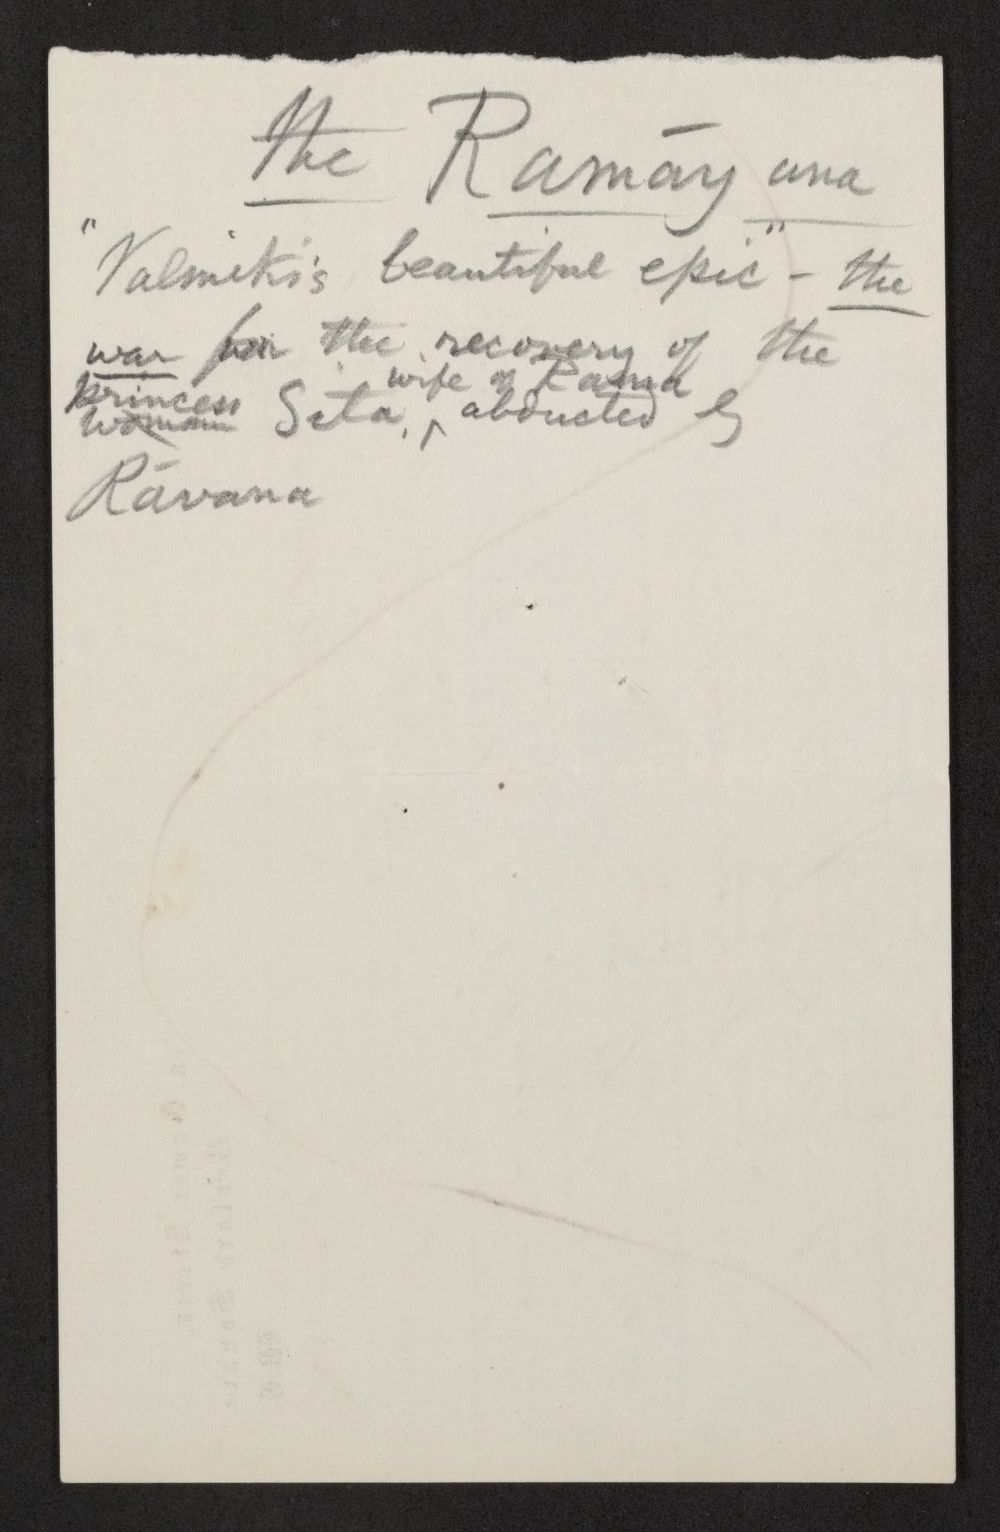 the Ramāyana
"Valmiki's beautiful epic" – the
war for the recovery of the
princess
woman Sita, wife of Rama abducted by
Rāvana